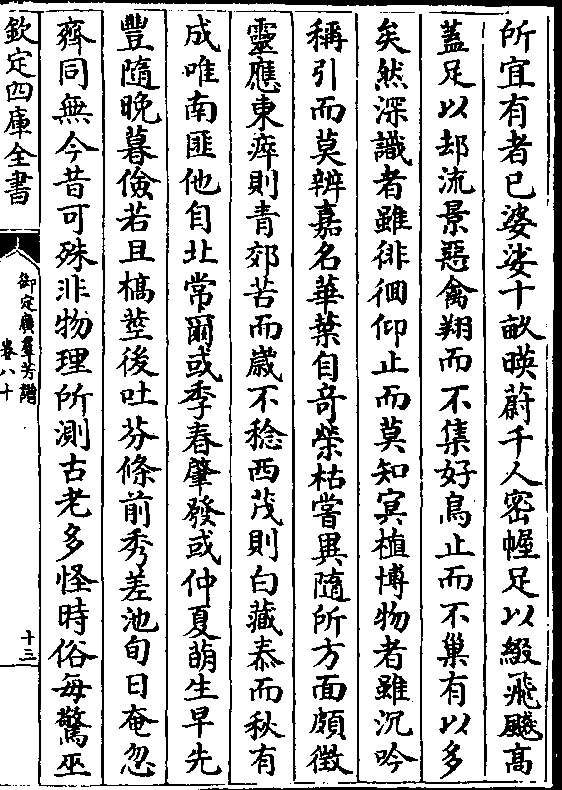 所宜有者已婆娑十畝暎蔚千人密幄足以綴飛飈高
蓋足以却流景惡禽翔而不集好鳥止而不巢有以多
矣然深識者雖徘徊仰止而莫知冥植博物者雖沉吟
稱引而莫辨嘉名華葉自奇榮枯嘗異隨所方面頗徵
靈應東瘁則青郊苦而歲不稔西茂則白藏泰而秋有
成唯南匪他自北常爾或季春肇發或仲夏萌生早先
豐隨晩暮儉若且槁莖後吐芬條前秀差池旬日奄忽
齊同無今昔可殊非物理所測古老多怪時俗每驚巫
欽定四庫全書
御定廣羣芳譜
卷八十
十三